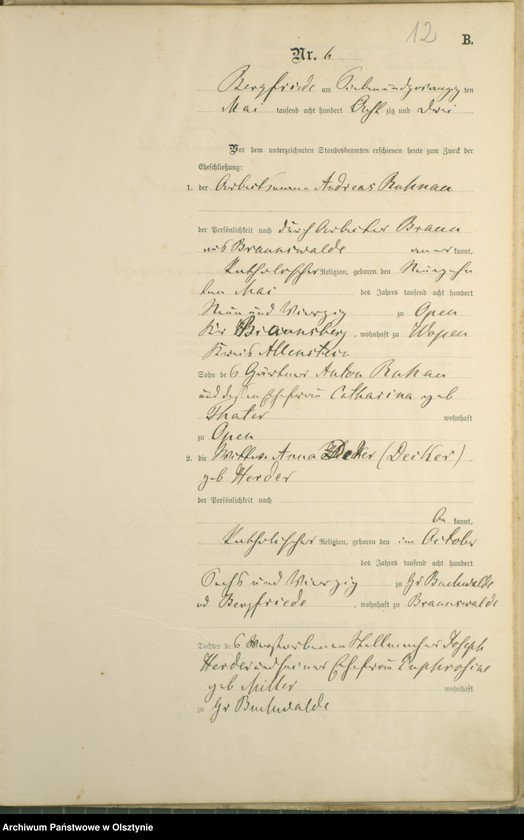 12
B.
Nr. 6
Bergfriede am Siebenundzwanzig ten
Mai tausend acht hundert Acht zig und drei
Vor dem unterzeichneten Standesbeamten erschienen heute zum Zweck der
Eheschließung:
1. der Arbeitsmann Andreas Ruhnau
der Persönlichkeit nach durch Arbeiter Braun
aus Braunswalde anerkannt,
katholischer Religion, geboren den Neunzehn
ten Mai des Jahres tausend acht hundert
Neun und Vierzig zu Open
Kr Braunsberg, wohnhaft zu Wopen
Kreis Allenstein
Sohn des Gärtner Anton Ruhau
und dessen Ehefrau Catharina geb
Thater wohnhaft
zu Open
2. die Wittwe Anna Decker (Decker)
geb Herder
der Persönlichkeit nach
be kannt,
katholischer Religion, geboren den im October
des Jahres tausend acht hundert
Sechs und Vierzig zu Gr Buchwalde
Bergfriede, wohnhaft zu Braunswalde
Tochter des verstorbenen Stellmacher Joseph
Herder und seiner Ehefrau Euphrosine
geb Miller wohnhaft
zu Gr Buchwalde
Archiwum Państwowe w Olsztynie